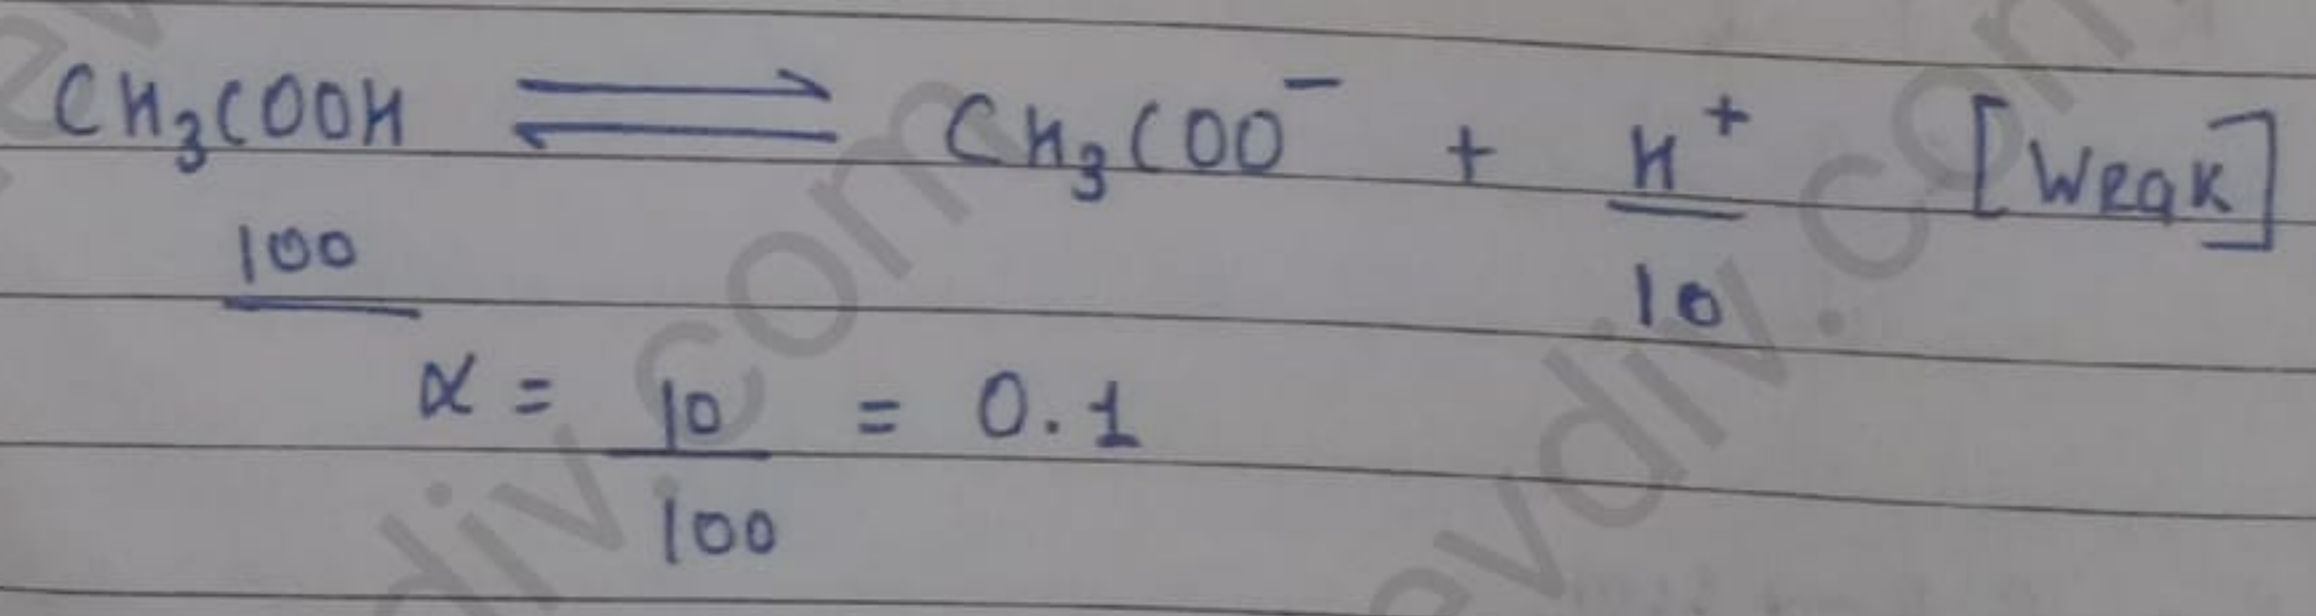 CH₃COOH ⇌ CH₃COO⁻ + H⁺ [Weak]
100 10
α = 10/100 = 0.1